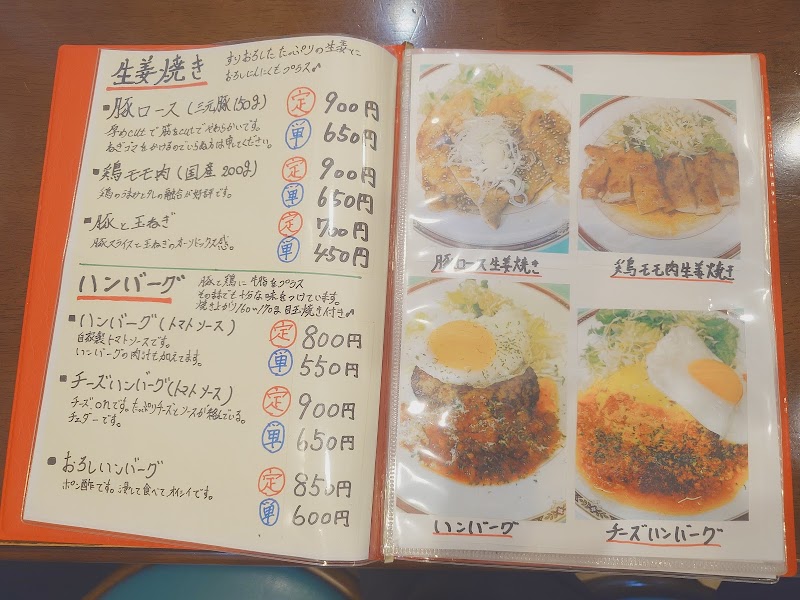 生姜焼き
すりおろした たっぷりの生姜に
おろしにんにくもプラス♪
■豚ロース(三元豚150g) 定 900円
厚めcutで筋をcutでやわらかいです。 単 650円
ねぎゴマをかけるのでいらぬ方は申してください。
■鶏モモ肉(国産200g) 定 900円
鶏のうまみとタレの融合が好評です。 単 650円
■豚と玉ねぎ 定 700円
豚スライスと玉ねぎのオーソドックス感。 単 450円
ハンバーグ
豚と鶏に牛脂をプラス
その話でも十分な味をつけています。
焼き上がり160〜170g 目玉焼き付き♪
■ハンバーグ(トマトソース) 定 800円
自家製トマトソースです。 単 550円
ハンバーグの肉汁も加えてます。
■チーズハンバーグ(トマトソース) 定 900円
たっぷりチーズとソースが絡んでいる。 単 650円
チェダーです。
■おろしハンバーグ 定 850円
ポン酢です。浸して食べてオイシイです。 単 600円
豚ロース生姜焼き
鶏モモ肉生姜焼き
ハンバーグ
チーズハンバーグ